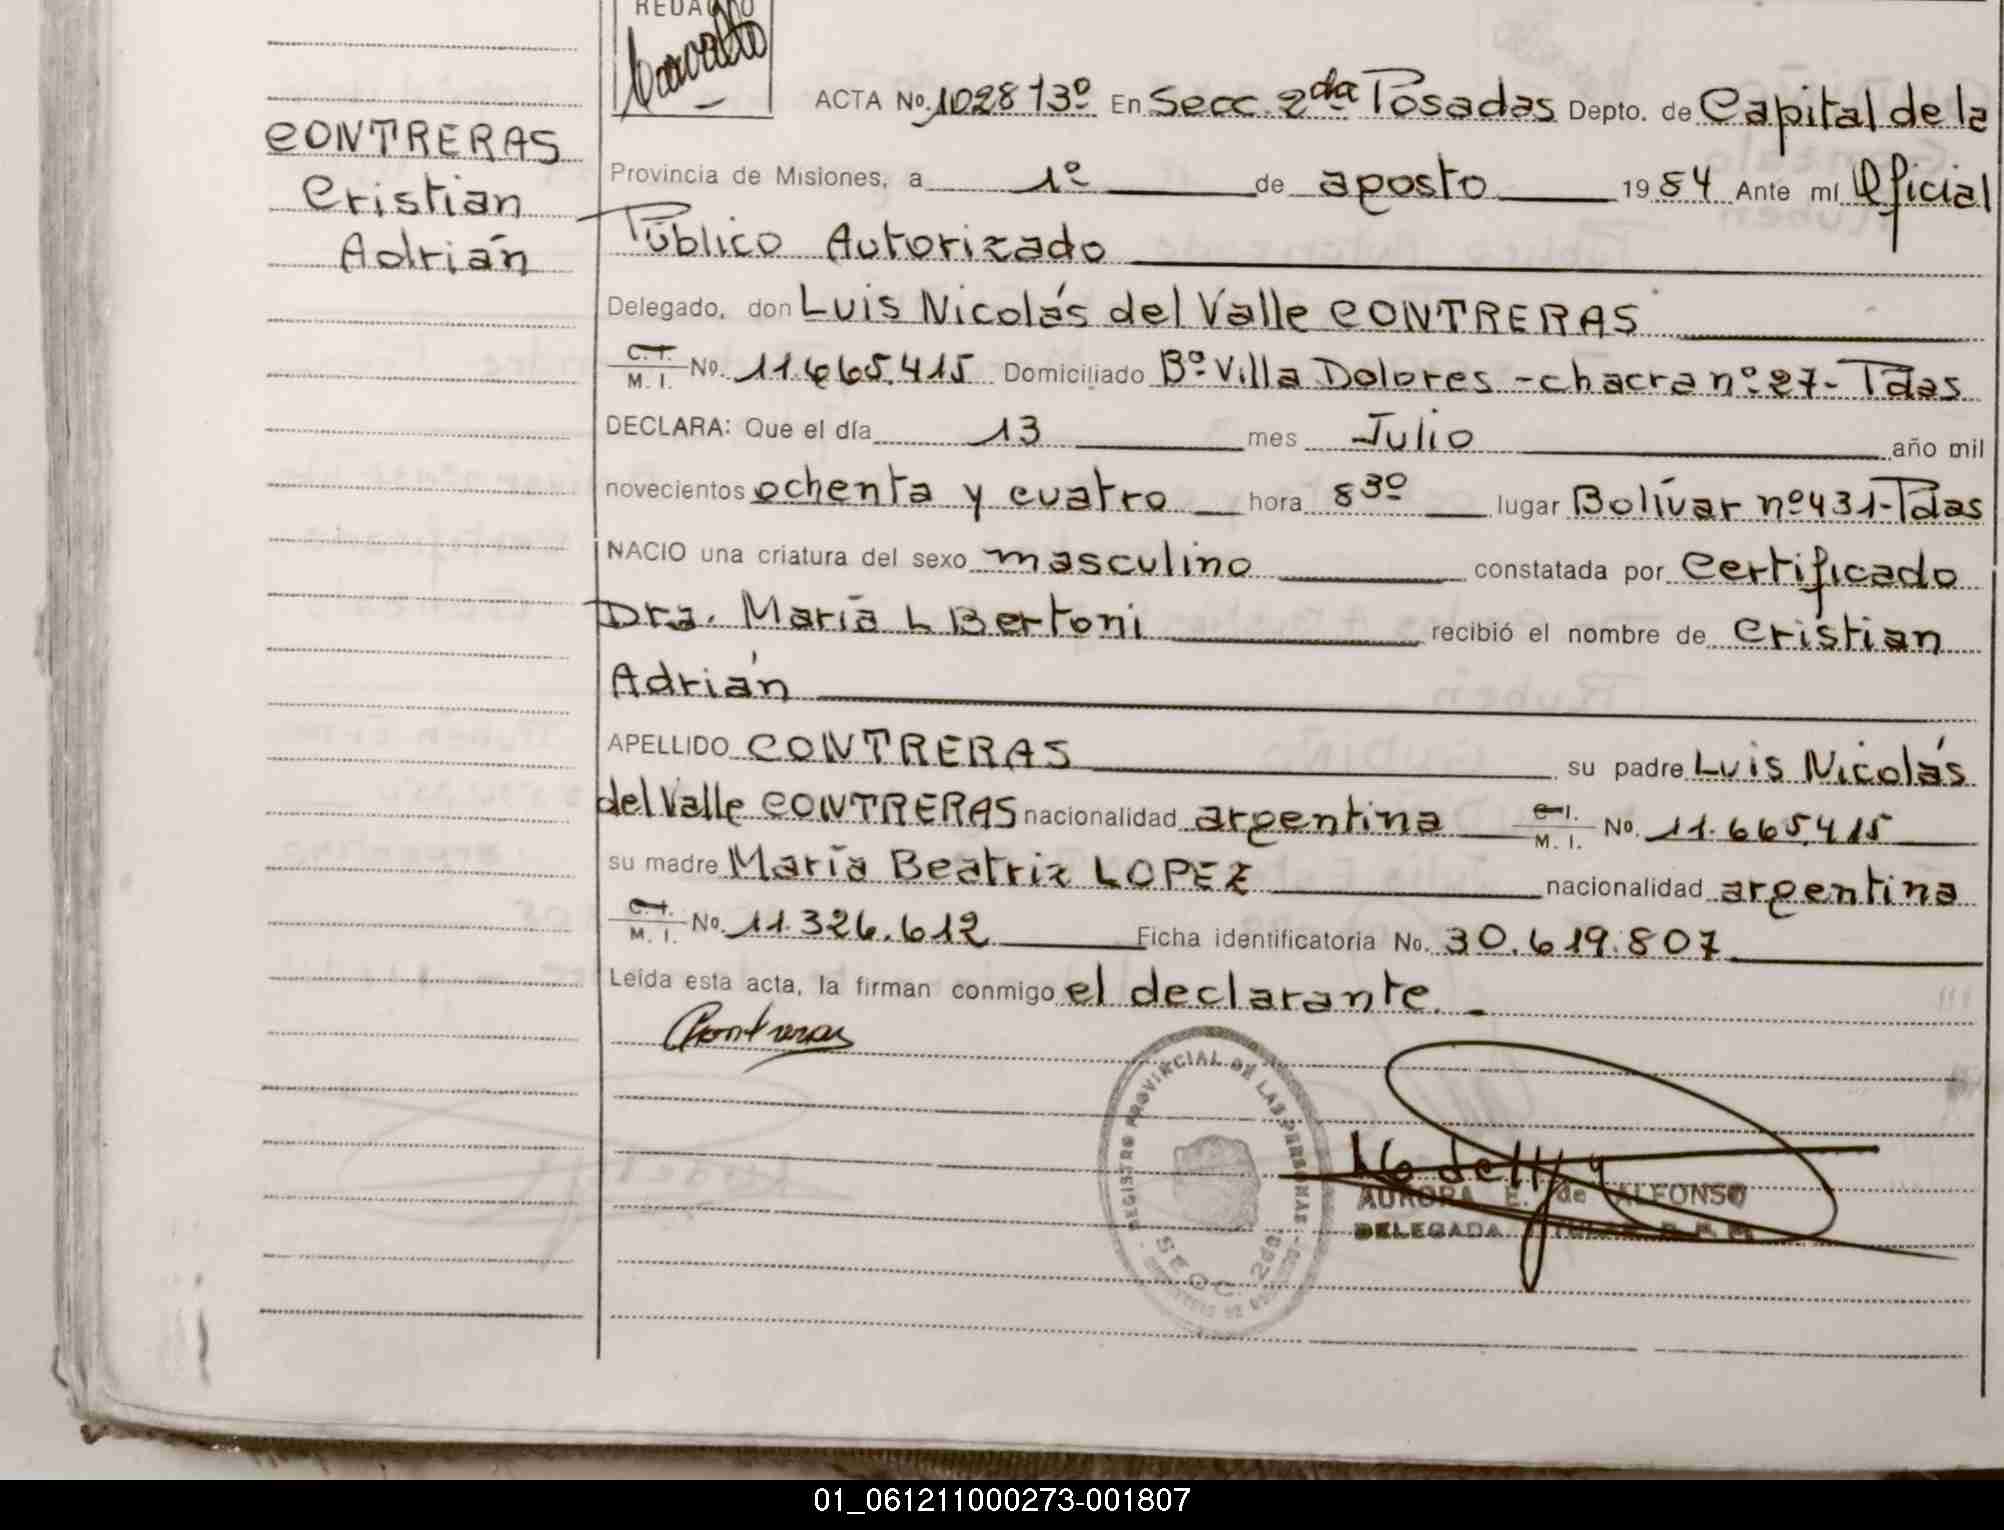 REDACTO
CONTRERAS
Cristian
Adrián
ACTA No. 1028 T3º En Secc. 2da Posadas Depto. de Capital de la
Provincia de Misiones, a 1º de agosto 1984 Ante mí Oficial
Público Autorizado
Delegado, don Luis Nicolás del Valle CONTRERAS
C. I. M. I. No. 11.665.415 Domiciliado Bº Villa Dolores - chacra nº 27 - Pdas
DECLARA: Que el día 13 mes Julio año mil
novecientos ochenta y cuatro hora 8 30 lugar Bolívar nº 431 - Pdas
NACIO una criatura del sexo masculino constatada por Certificado
Dra. María L Bertoni recibió el nombre de Cristian
Adrián
APELLIDO CONTRERAS su padre Luis Nicolás
del Valle CONTRERAS nacionalidad argentina C. I. M. I. No. 11.665.415
su madre María Beatriz LOPEZ nacionalidad argentina
C. I. M. I. No. 11.326.612 Ficha identificatoria No. 30.619.807
Leída esta acta, la firman conmigo el declarante.
Contreras
REGISTRO PROVINCIAL DE LAS PERSONAS
SECC. 2da
AURORA E. de ALFONSO
DELEGADA TITULAR
01_061211000273-001807